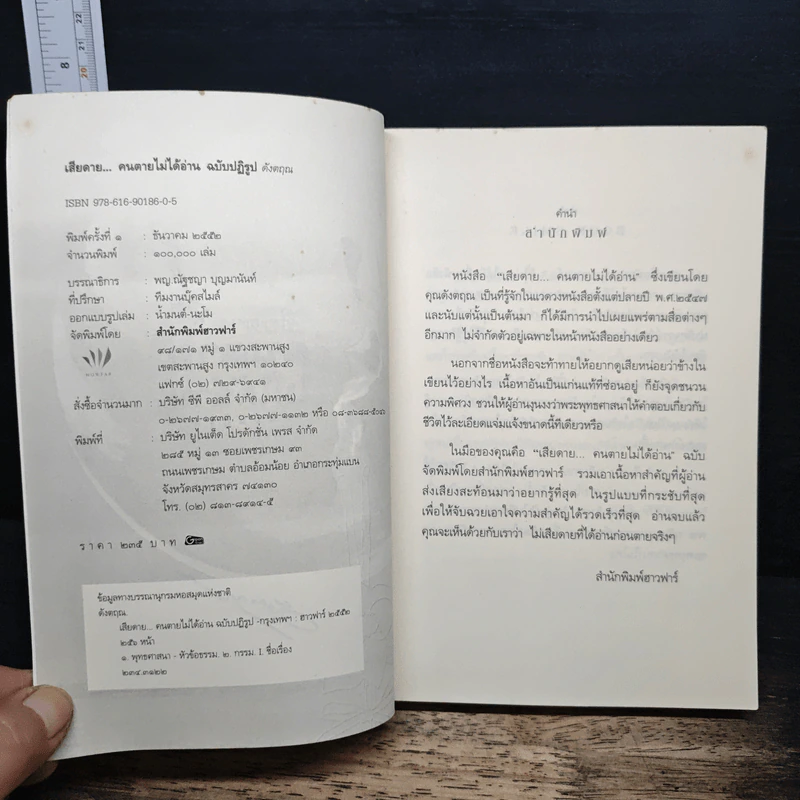 8
22
21
20
เสียดาย... คนตายไม่ได้อ่าน ฉบับปฏิรูป ดังตฤณ
ISBN 978-616-90186-0-5
พิมพ์ครั้งที่ ๑ : ธันวาคม ๒๕๕๒
จำนวนพิมพ์ : ๑๐๐,๐๐๐ เล่ม
บรรณาธิการ : พญ.ณัฐชญา บุญมานันท์
ที่ปรึกษา : ทีมงานบุ๊คสไมล์
ออกแบบรูปเล่ม : น้ำมนต์-นะโม
จัดพิมพ์โดย : สำนักพิมพ์ฮาวฟาร์
๙๘/๑๗๑ หมู่ ๑ แขวงสะพานสูง
เขตสะพานสูง กรุงเทพฯ ๑๐๒๔๐
แฟกซ์ (๐๒) ๗๒๙-๖๙๔๑
HOWFAR
สั่งซื้อจำนวนมาก : บริษัท ซีพี ออลล์ จำกัด (มหาชน)
๐-๒๖๗๗-๑๙๓๓, ๐-๒๖๗๗-๑๑๓๒ หรือ
พิมพ์ที่ : บริษัท ยูไนเต็ด โปรดักชั่น เพรส จำกัด
๒๘๕ หมู่ ๑๓ ซอยเพชรเกษม ๙๓
ถนนเพชรเกษม ตำบลอ้อมน้อย อำเภอกระทุ่มแบน
จังหวัดสมุทรสาคร ๗๔๑๓๐
โทร. (๐๒) ๘๑๓-๘๙๑๔-๕
ราคา ๒๓๕ บาท
ข้อมูลทางบรรณานุกรมหอสมุดแห่งชาติ
ดังตฤณ.
เสียดาย... คนตายไม่ได้อ่าน ฉบับปฏิรูป -กรุงเทพฯ : ฮาวฟาร์ ๒๕๕๒
๒๕๖ หน้า
๑. พุทธศาสนา - หัวข้อธรรม. ๒. กรรม. I. ชื่อเรื่อง
๒๙๔.๓๑๒๒
คำนำ
สำนักพิมพ์
หนังสือ “เสียดาย... คนตายไม่ได้อ่าน” ซึ่งเขียนโดย
คุณดังตฤณ เป็นที่รู้จักในแวดวงหนังสือตั้งแต่ปลายปี พ.ศ.๒๕๔๗
และนับแต่นั้นเป็นต้นมา ก็ได้มีการนำไปเผยแพร่ตามสื่อต่างๆ
อีกมาก ไม่จำกัดตัวอยู่เฉพาะในหน้าหนังสืออย่างเดียว
นอกจากชื่อหนังสือจะท้าทายให้อยากดูเสียหน่อยว่าข้างใน
เขียนไว้อย่างไร เนื้อหาอันเป็นแก่นแท้ที่ซ่อนอยู่ ก็ยังจุดชนวน
ความพิศวง ชวนให้ผู้อ่านงุนงงว่าพระพุทธศาสนาให้คำตอบเกี่ยวกับ
ชีวิตไว้ละเอียดแจ่มแจ้งขนาดนี้ทีเดียวหรือ
ในมือของคุณคือ “เสียดาย... คนตายไม่ได้อ่าน” ฉบับ
จัดพิมพ์โดยสำนักพิมพ์ฮาวฟาร์ รวมเอาเนื้อหาสำคัญที่ผู้อ่าน
ส่งเสียงสะท้อนมาว่าอยากรู้ที่สุด ในรูปแบบที่กระชับที่สุด
เพื่อให้จับฉวยเอาใจความสำคัญได้รวดเร็วที่สุด อ่านจบแล้ว
คุณจะเห็นด้วยกับเราว่า ไม่เสียดายที่ได้อ่านก่อนตายจริงๆ
สำนักพิมพ์ฮาวฟาร์